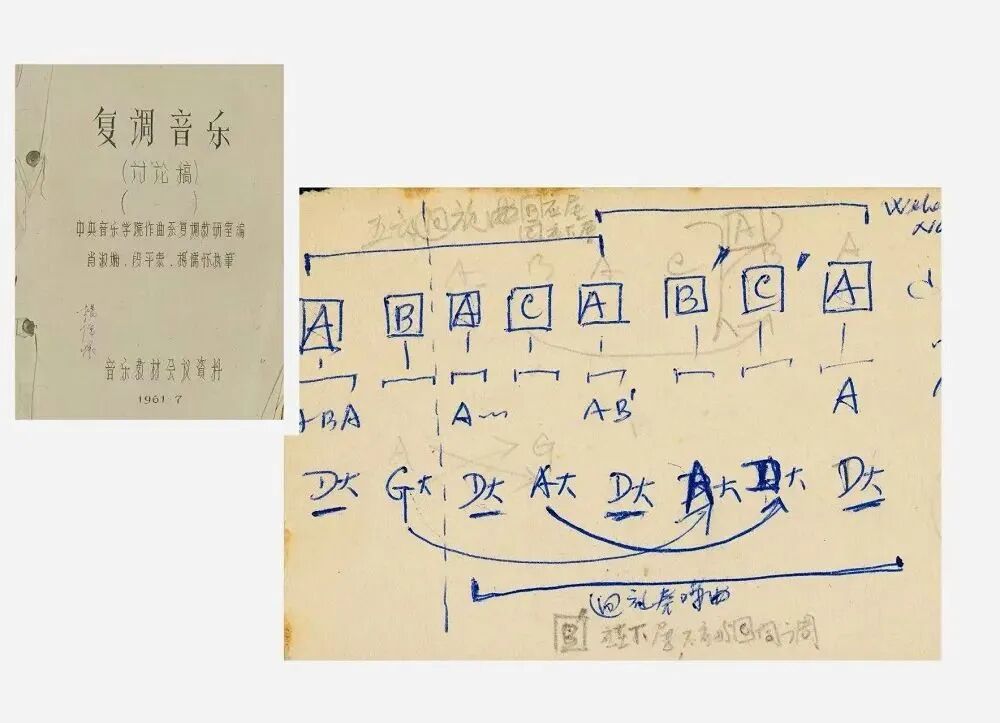 复调音乐
(讨论稿)
(一)
中央音乐学院作曲系复调教研室编
肖淑娴、段平泰、杨儒怀执笔
杨儒怀
音乐教材会议资料
1961·7
五部回旋曲
A B A C A B″ C′ A
A
ABA A… AB′ A
A G
D大 G大 D大 A大 D大 A大 D大 D大
回旋奏鸣曲
B′ 在下属 C 同调